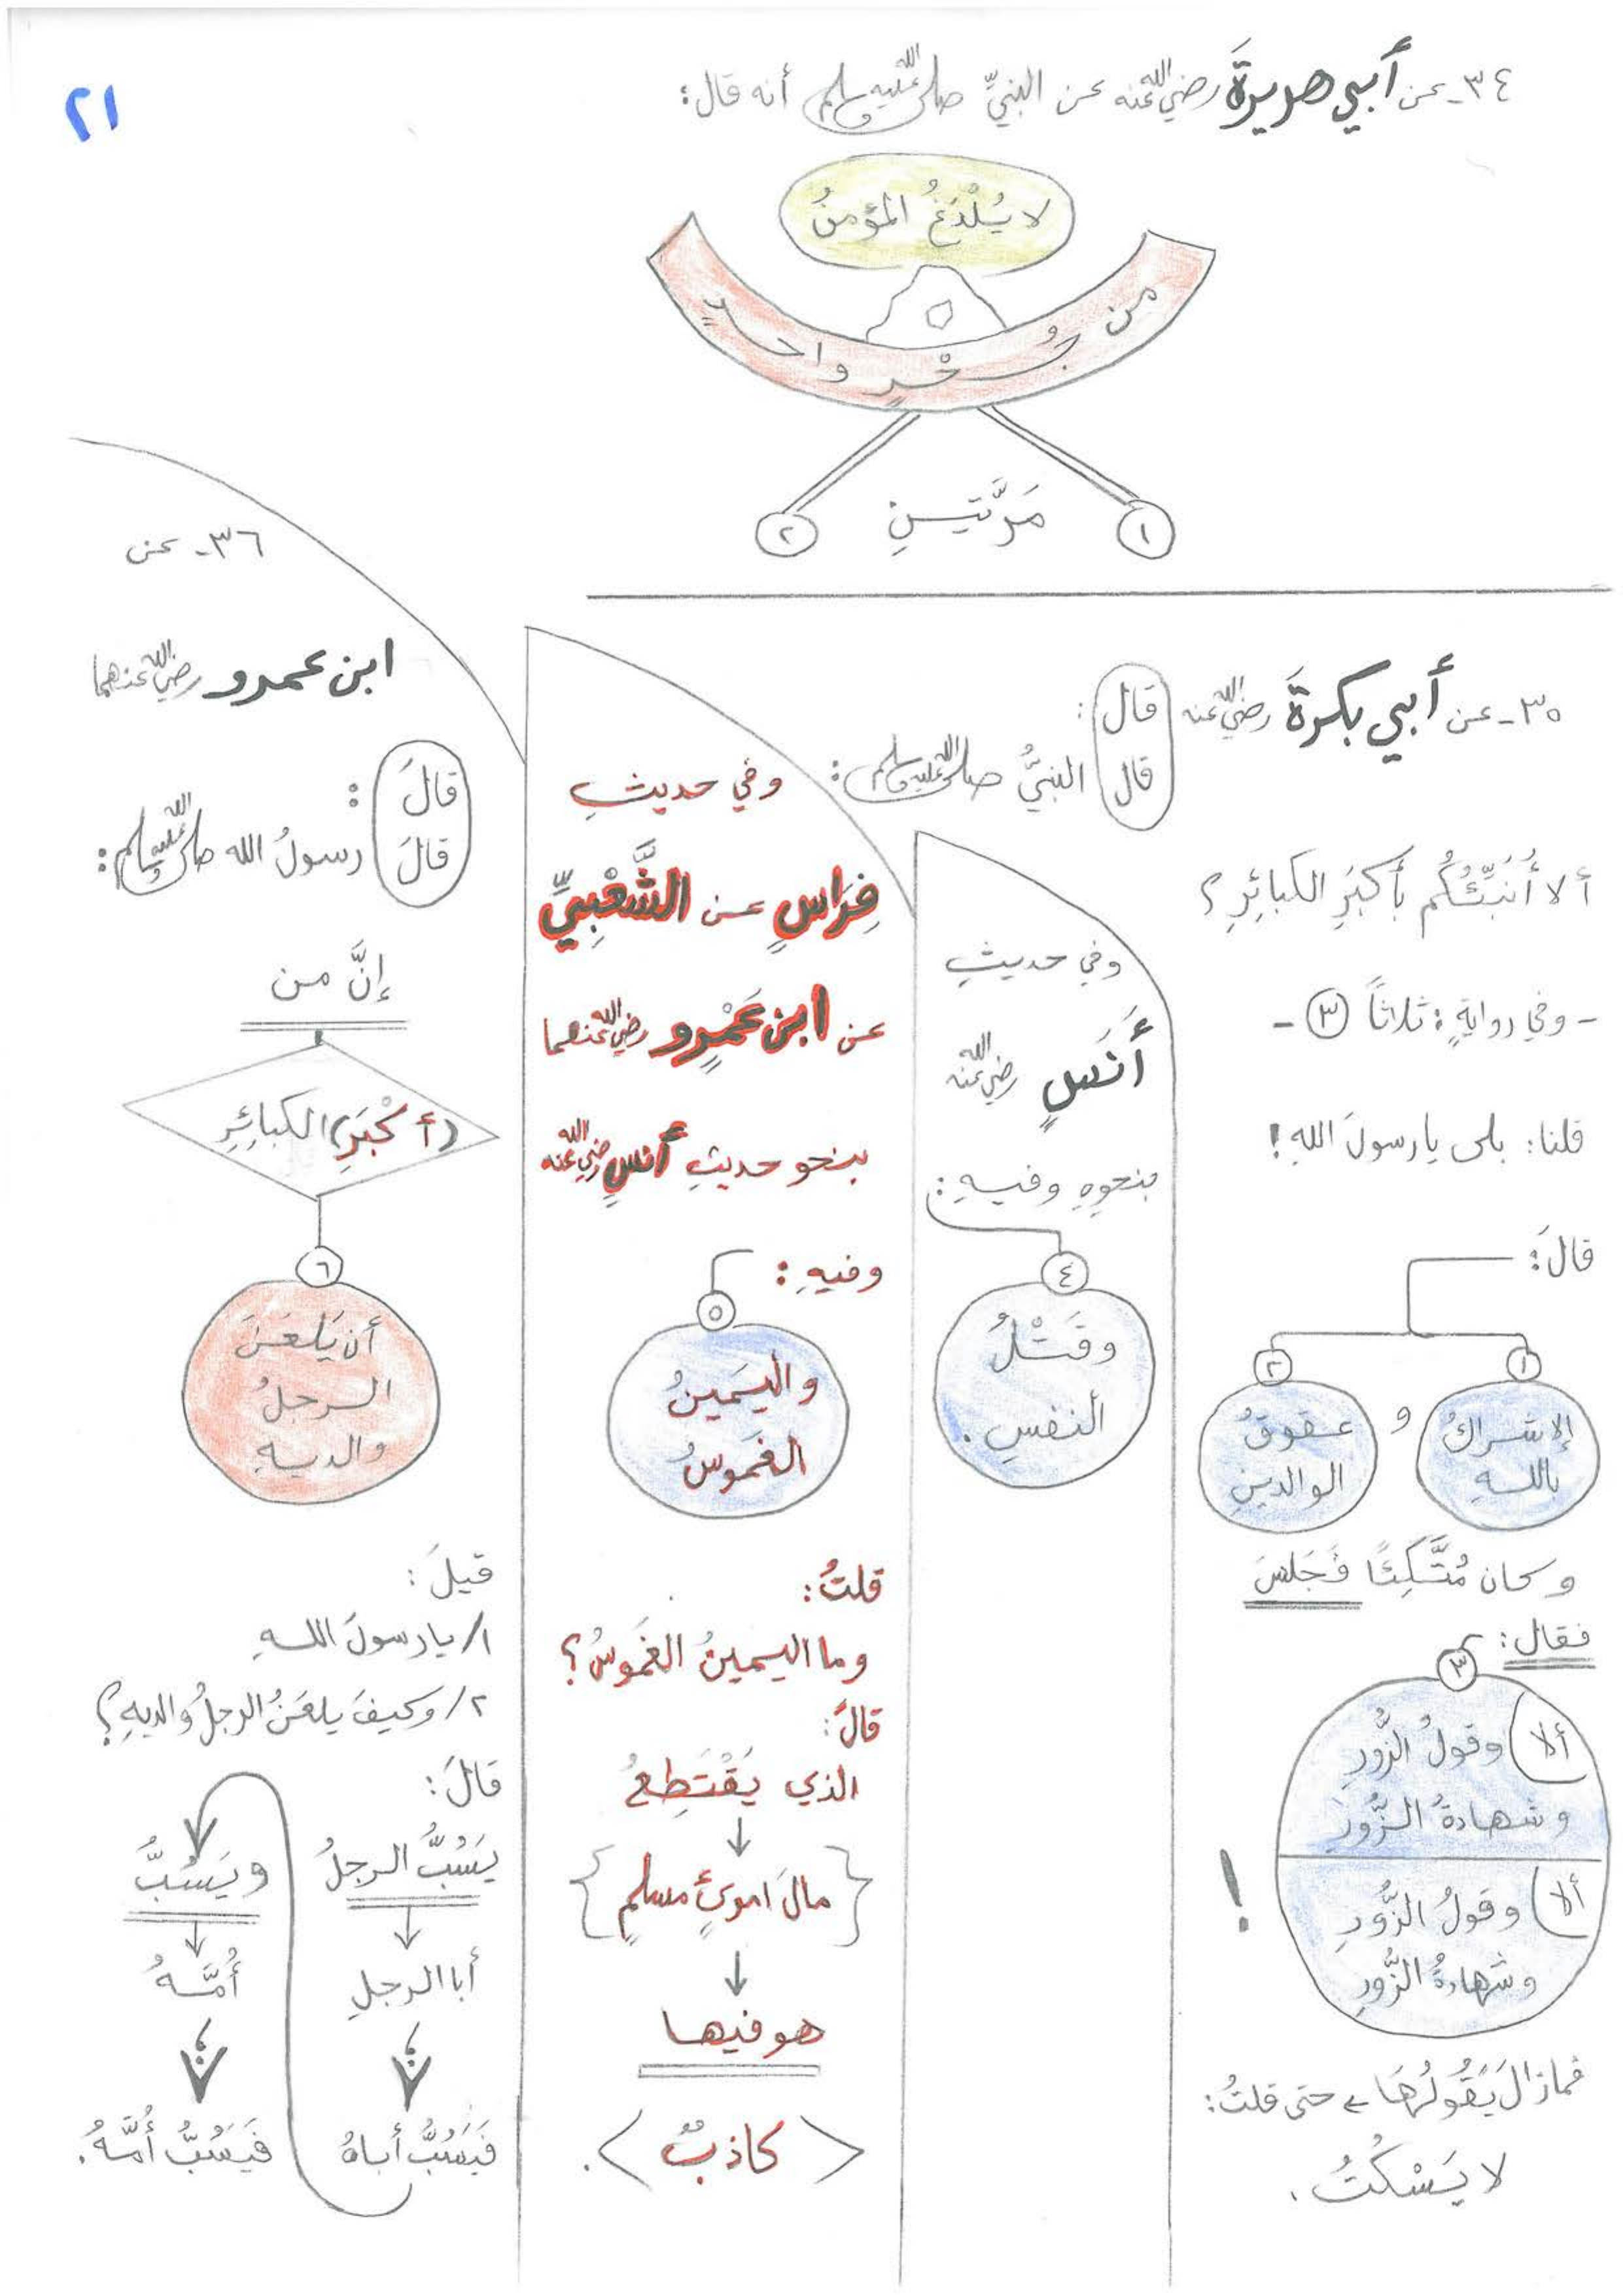 ٢١
٣٤- عن أبي هريرةَ رضي الله عنه عن النبيِّ صلى الله عليه وسلم أنه قال:
لا يُلْدَغُ المؤمنُ
من جُحْرٍ واحدٍ
مَرَّتينِ
١
٢
٣٥- عن أبي بكرةَ رضي الله عنه قال:
قال النبيُّ صلى الله عليه وسلم:
ألا أُنَبِّئُكُم بأكبَرِ الكبائِرِ؟
- وفي روايةٍ: ثلاثاً ٣ -
قلنا: بلى يا رسولَ اللهِ!
قالَ:
١
الإشراكُ
باللهِ
و
٢
عقوقُ
الوالدينِ
وكان مُتَّكِئًا فَجَلَسَ
فقال:
٣
ألا وقولُ الزُّورِ
وشهادةُ الزُّورِ
ألا وقولُ الزُّورِ
وشهادةُ الزُّورِ
!
فمازالَ يَقُولُهَا حتى قلتُ:
لا يَسْكُتُ.
وفي حديثِ
أَنَسٍ رضي الله عنه
بنحوِهِ وفيهِ:
٤
وقَتْلُ
النفسِ.
وفي حديثِ
فِرَاسٍ عن الشَّعْبِيِّ
عن ابن عَمْرٍو رضي الله عنهما
بنحو حديثِ أنسٍ رضي الله عنه
وفيهِ:
٥
واليَمينُ
الغَموسُ
قلتُ:
وما اليمينُ الغَموسُ؟
قالَ:
الذي يَقْتَطِعُ
مالَ امرئٍ مسلمٍ
هو فيها
كاذبٌ.
٣٦- عن
ابن عمرو رضي الله عنهما
قالَ:
قالَ رسولُ الله صلى الله عليه وسلم:
إنَّ من
(أكْبَرِ) الكبائِرِ
٦
أن يَلعَنَ
الرجلُ
والديهِ
قيلَ:
١/ يا رسولَ اللهِ
٢/ وكيفَ يلعَنُ الرجلُ والديهِ؟
قالَ:
يَسُبُّ الرجلُ
أبا الرجلِ
فيَسُبُّ أباهُ
ويَسُبُّ
أُمَّهُ
فيَسُبُّ أُمَّهُ.